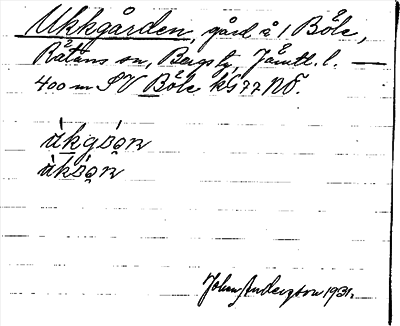 Ukkgården, gård å 1 Böle,
Rätans sn, Bergs tg, Jämtl. l. —
400 m SV Böle k G77 NÖ.
ákgǻo̯n
àkǻo̯n
John Anderzson 1931.